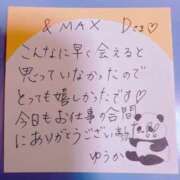 & MAX Dさま♡
こんなに早く会えると
思っていなかったので
とっても嬉しかったです!
今日もお仕事の合間
にありがとうござい
ゆうか